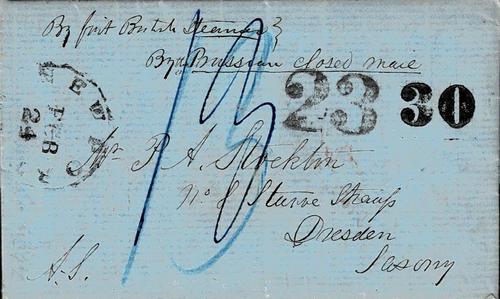 By first British Steamer }
By Prussian closed mail
23 30
NEW
FEB
24
13
Mr P. A. Stockton
No 8 Struve Strauss
Dresden
Saxony
A.S.